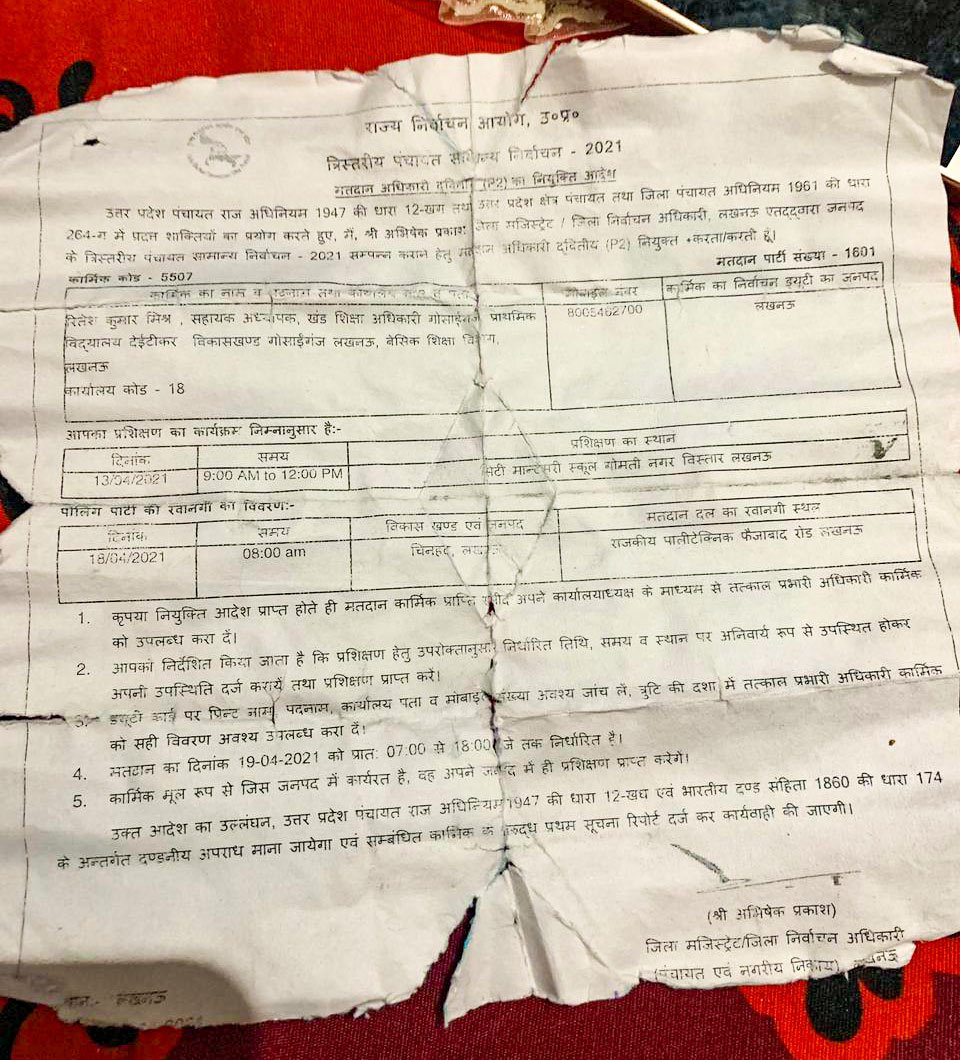 राज्य निर्वाचन आयोग, उ०प्र०
त्रिस्तरीय पंचायत सामान्य निर्वाचन - 2021
मतदान अधिकारी द्वितीय (P2) का नियुक्ति आदेश
उत्तर प्रदेश पंचायत राज अधिनियम 1947 की धारा 12-खग तथा उत्तर प्रदेश क्षेत्र पंचायत तथा जिला पंचायत अधिनियम 1961 की धारा
264-ग में प्रदत्त शक्तियों का प्रयोग करते हुए, मैं, श्री अभिषेक प्रकाश जिला मजिस्ट्रेट / जिला निर्वाचन अधिकारी, लखनऊ एतद्द्वारा जनपद
के त्रिस्तरीय पंचायत सामान्य निर्वाचन - 2021 सम्पन्न कराने हेतु मतदान अधिकारी द्वितीय (P2) नियुक्त *करता/करती हूँ।
कार्मिक कोड - 5507
मतदान पार्टी संख्या - 1601
कार्मिक का नाम व पदनाम तथा कार्यालय का पता
मोबाईल नंबर
कार्मिक का निर्वाचन ड्यूटी का जनपद
रितेश कुमार मिश्र , सहायक अध्यापक, खंड शिक्षा अधिकारी गोसाईगंज प्राथमिक
8005462700
लखनऊ
विद्यालय देईटीकर विकासखण्ड गोसाईगंज लखनऊ, बेसिक शिक्षा विभाग,
लखनऊ
कार्यालय कोड - 18
आपका प्रशिक्षण का कार्यक्रम निम्नानुसार है:-
दिनांक समय प्रशिक्षण का स्थान
13/04/2021 9:00 AM to 12:00 PM सिटी मान्टेसरी स्कूल गोमती नगर विस्तार लखनऊ
पोलिंग पार्टी की रवानगी का विवरण:-
दिनांक समय विकास खण्ड एवं जनपद मतदान दल का रवानगी स्थल
18/04/2021 08:00 am चिनहट, लखनऊ राजकीय पालीटेक्निक फैजाबाद रोड लखनऊ
1. कृपया नियुक्ति आदेश प्राप्त होते ही मतदान कार्मिक प्राप्ति रसीद अपने कार्यालयाध्यक्ष के माध्यम से तत्काल प्रभारी अधिकारी कार्मिक
को उपलब्ध करा दें।
2. आपको निर्देशित किया जाता है कि प्रशिक्षण हेतु उपरोक्तानुसार निर्धारित तिथि, समय व स्थान पर अनिवार्य रूप से उपस्थित होकर
अपनी उपस्थिति दर्ज करायें तथा प्रशिक्षण प्राप्त करें।
3. ड्यूटी कार्ड पर प्रिन्ट नाम, पदनाम, कार्यालय पता व मोबाइल संख्या अवश्य जांच लें, त्रुटि की दशा में तत्काल प्रभारी अधिकारी कार्मिक
को सही विवरण अवश्य उपलब्ध करा दें।
4. मतदान का दिनांक 19-04-2021 को प्रात: 07:00 से 18:00 बजे तक निर्धारित है।
5. कार्मिक मूल रूप से जिस जनपद में कार्यरत है, वह अपने जनपद में ही प्रशिक्षण प्राप्त करेंगे।
उक्त आदेश का उल्लंघन, उत्तर प्रदेश पंचायत राज अधिनियम 1947 की धारा 12-खघ एवं भारतीय दण्ड संहिता 1860 की धारा 174
के अन्तर्गत दण्डनीय अपराध माना जायेगा एवं सम्बंधित कार्मिक के विरुद्ध प्रथम सूचना रिपोर्ट दर्ज कर कार्यवाही की जाएगी।
(श्री अभिषेक प्रकाश)
जिला मजिस्ट्रेट/जिला निर्वाचन अधिकारी
(पंचायत एवं नगरीय निकाय) लखनऊ
लखनऊ